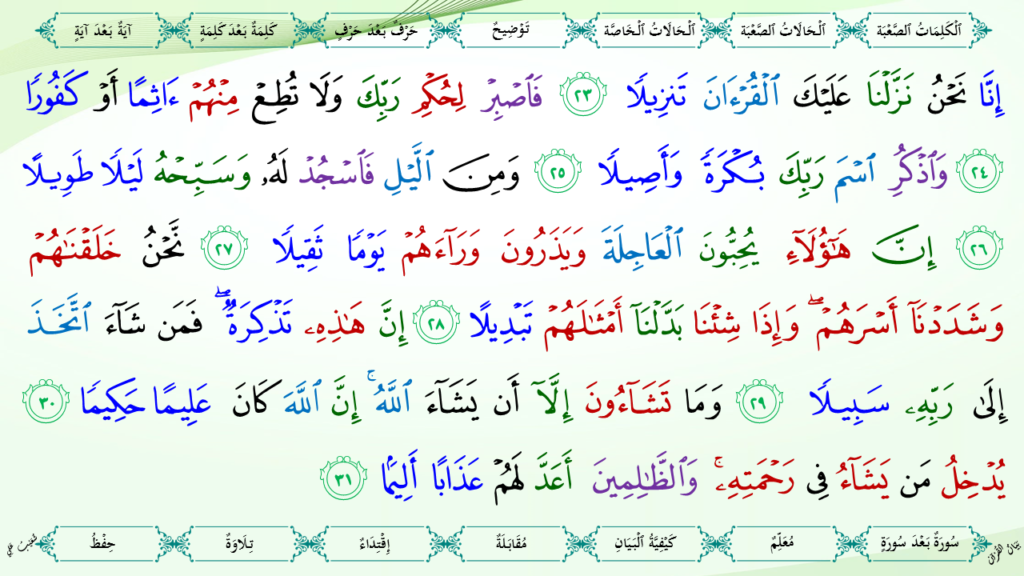 اَلْكَلِمَاتُ الصَّعْبَة اَلْحَالَاتُ الصَّعْبَة اَلْحَالَاتُ الْخَاصَّة تَوْضِيحٌ حَرْفٌ بَعْدَ حَرْفٍ كَلِمَةٌ بَعْدَ كَلِمَةٍ آيَةٌ بَعْدَ آيَةٍ
إِنَّا نَحْنُ نَزَّلْنَا عَلَيْكَ ٱلْقُرْءَانَ تَنزِيلًا ٢٣ فَٱصْبِرْ لِحُكْمِ رَبِّكَ وَلَا تُطِعْ مِنْهُمْ ءَاثِمًا أَوْ كَفُورًا
٢٤ وَٱذْكُرِ ٱسْمَ رَبِّكَ بُكْرَةً وَأَصِيلًا ٢٥ وَمِنَ ٱلَّيْلِ فَٱسْجُدْ لَهُۥ وَسَبِّحْهُ لَيْلًا طَوِيلًا
٢٦ إِنَّ هَٰٓؤُلَآءِ يُحِبُّونَ ٱلْعَاجِلَةَ وَيَذَرُونَ وَرَآءَهُمْ يَوْمًا ثَقِيلًا ٢٧ نَّحْنُ خَلَقْنَٰهُمْ
وَشَدَدْنَآ أَسْرَهُمْ ۖ وَإِذَا شِئْنَا بَدَّلْنَآ أَمْثَٰلَهُمْ تَبْدِيلًا ٢٨ إِنَّ هَٰذِهِۦ تَذْكِرَةٌ ۖ فَمَن شَآءَ ٱتَّخَذَ
إِلَىٰ رَبِّهِۦ سَبِيلًا ٢٩ وَمَا تَشَآءُونَ إِلَّآ أَن يَشَآءَ ٱللَّهُ ۚ إِنَّ ٱللَّهَ كَانَ عَلِيمًا حَكِيمًا ٣٠
يُدْخِلُ مَن يَشَآءُ فِى رَحْمَتِهِۦ ۚ وَٱلظَّٰلِمِينَ أَعَدَّ لَهُمْ عَذَابًا أَلِيمًۢا ٣١
سُورَةٌ بَعْدَ سُورَةٍ مُعَلِّمٌ كَيْفِيَّةُ الْبَيَانِ مُقَابَلَةٌ إِقْتِدَاءٌ تِلَاوَةٌ حِفْظٌ
بَيَانُ الْقُرْآن